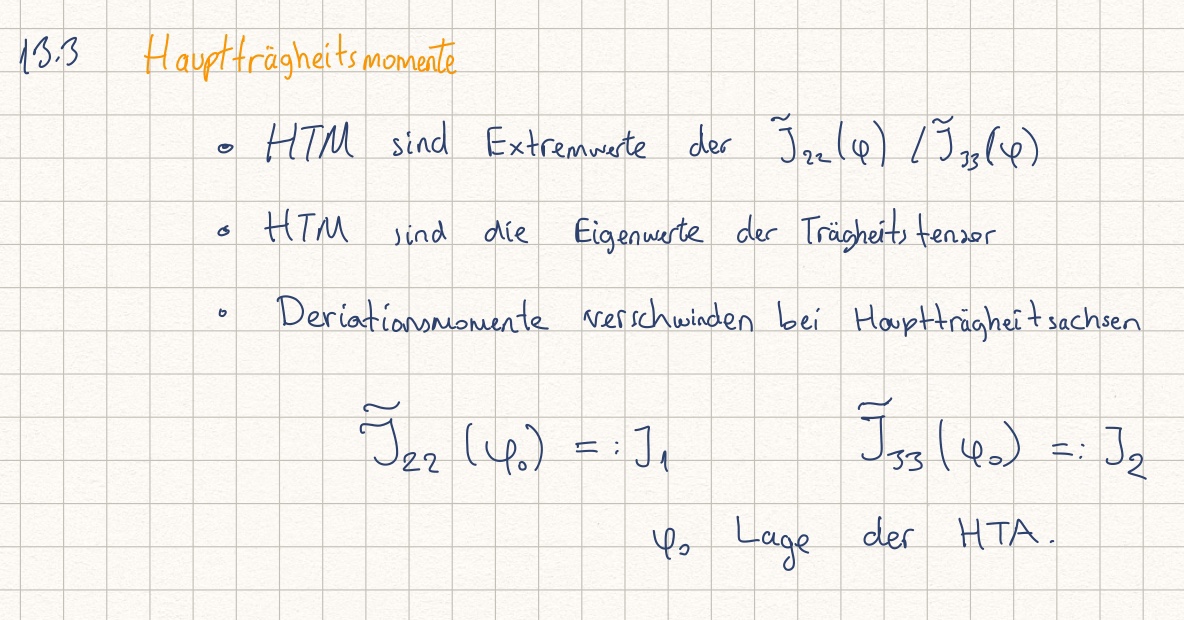 13.3 Hauptträgheitsmomente
• HTM sind Extremwerte der J̃₂₂(φ) / J̃₃₃(φ)
• HTM sind die Eigenwerte der Trägheitstensor
• Deviationsmomente verschwinden bei Hauptträgheitsachsen
J̃₂₂(φ₀) =: J₁ J̃₃₃(φ₀) =: J₂
φ₀ Lage der HTA.